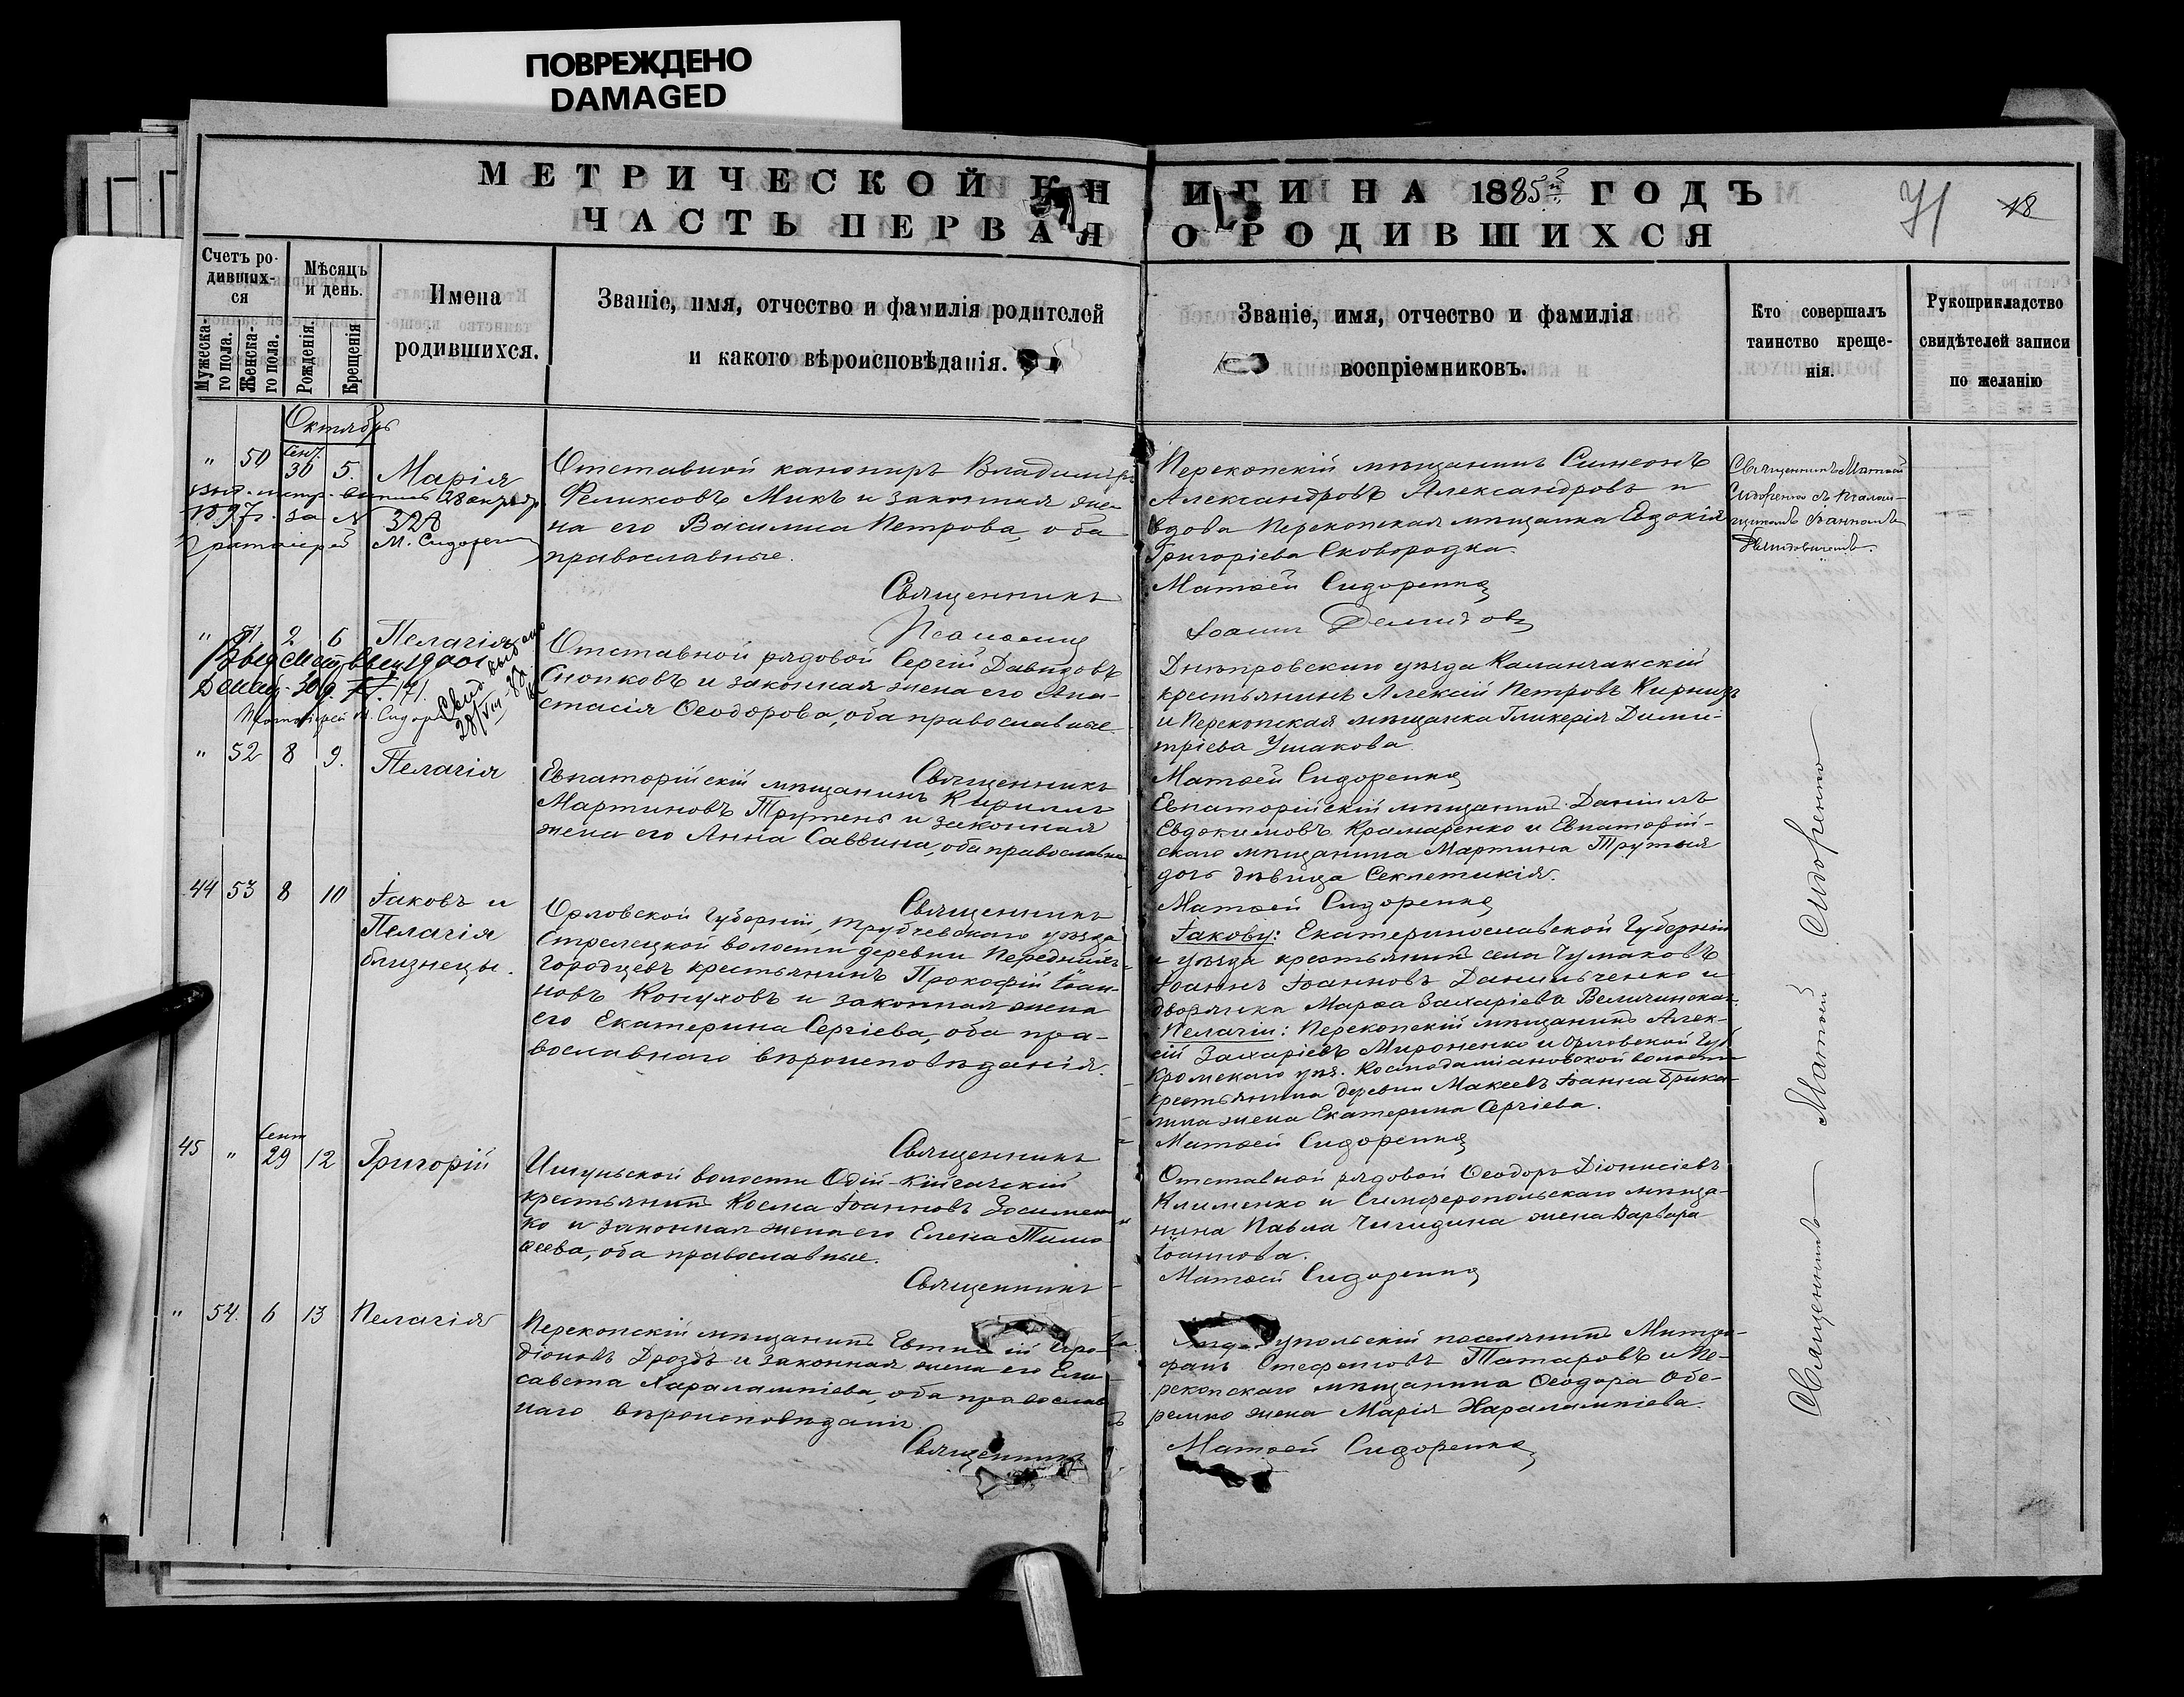 ПОВРЕЖДЕНО
DAMAGED
МЕТРИЧЕСКОЙ КНИГИ НА 1885й ГОДЪ
ЧАСТЬ ПЕРВАЯ О РОДИВШИХСЯ
71 18
Счетъ родившихся
Мужескаго пола.
Женскаго пола.
Мѣсяцъ и день.
Рожденія.
Крещенія
Имена
родившихся.
Званіе, имя, отчество и фамилія родителей
и какого вѣроисповѣданія.
Званіе, имя, отчество и фамилія
воспріемниковъ.
Кто совершалъ
таинство креще-
нія.
Рукоприкладство
свидѣтелей записи
по желанію
Октябрь
" 50 Сент. 30 5. Марія
1897г. за № 328
М. Сидорен
Отставной канониръ Владиміръ
Феликсовъ Микъ и законная же-
на его Василиса Петрова, оба
православные.
Священникъ
Псаломщ
Перекопскій мѣщанинъ Симеонъ
Александровъ Александровъ и
вдова Перекопская мѣщанка Евдокія
Григоріева Сковородка.
Матѳей Сидоренко
Іоаннъ Демидов
Священникъ Матѳей
Сидоренко съ псалом-
щикомъ Іоанномъ
Демидовичемъ.
" 51 2 6 Пелагія
Протоіерей М. Сидор
Отставной рядовой Сергій Давидовъ
Снопковъ и законная жена его Ана-
стасія Ѳеодорова, оба православные
Священникъ
Днѣпровскаго уѣзда Каланчакскій
крестьянинъ Алексій Петровъ Кирнизъ
и Перекопская мѣщанка Гликерія Дими-
тріева Ушакова.
Матѳей Сидоренко
" 52 8 9. Пелагія
Евпаторійскій мѣщанинъ Кириллъ
Мартиновъ Трутень и законная
жена его Анна Саввина, оба православные
Священникъ
Евпаторійскій мѣщанинъ Даніилъ
Евдокимовъ Крамаренко и Евпаторій-
скаго мѣщанина Мартина Трутня
дочь дѣвица Секлетикія.
Матѳей Сидоренко
44 53 8 10 Іаковъ и
Пелагія
близнецы.
Орловской Губерніи, Трубчевскаго уѣзда
Стрелецкой волости деревни Переднихъ-
Городцевъ крестьянинъ Прокофій Іоан-
новъ Конуховъ и законная жена
его Екатерина Сергіева, оба пра-
вославнаго вѣроисповѣданія.
Священникъ
Іакову: Екатеринославской Губерніи
и уѣзда крестьянинъ села Чумаковъ
Іоаннъ Іоанновъ Данильченко и
дворянка Марѳа Захаріева Величинская.
Пелагіи: Перекопскій мѣщанинъ Алек-
сій Захаріевъ Мироненко и Орловской Губ.
Кромскаго уѣз. Космодаміановской волости
крестьянина деревни Макеевъ Іоанна Брика-
жена Екатерина Сергіева.
Матѳей Сидоренко
45 " Сент 29 12 Григорій
Ишуньской волости Одій-Кійгачскій
крестьянинъ Косма Іоанновъ Зосимен-
ко и законная жена его Елена Тимо-
ѳеева, оба православные.
Священникъ
Отставной рядовой Ѳеодоръ Діонисіевъ
Клименко и Симферопольскаго мѣща-
нина Павла Чигидина жена Варвара
Іоаннова.
Матѳей Сидоренко
" 54. 6 13 Пелагія
Перекопскій мѣщанинъ Евти ій Иро-
діоновъ Дроздъ и законная жена его Ели-
савета Харалампіева, оба православ
наго вѣроисповѣданія
Священникъ
упольскій поселянинъ Митро-
фанъ Стефановъ Татаровъ и Пе-
рекопскаго мѣщанина Ѳеодора Обе-
ремко жена Марія Харалампіева.
Матѳей Сидоренко
Священникъ Матѳей Сидоренко